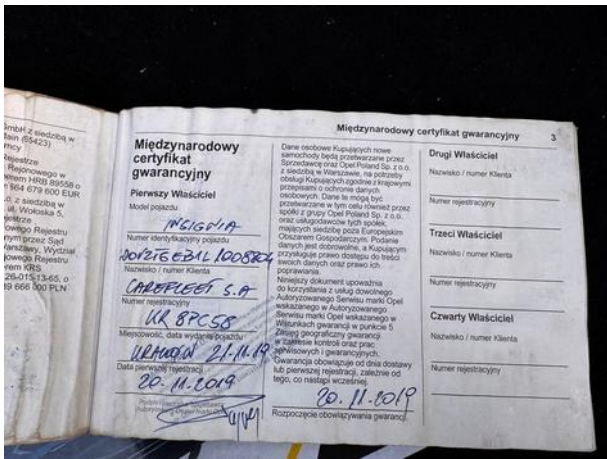 mbH z siedzibą w
Main (65423)
Rejonowego w
erem HRB 89558 o
664 679 600 EUR
o. z siedzibą w
ul. Wołoska 5,
jestrze
owego Rejestru
nym przez Sąd
Warszawy, Wydział
jowego Rejestru
rem KRS
26-015-13-65, o
666 000 PLN
Międzynarodowy certyfikat gwarancyjny 3
Międzynarodowy
certyfikat
gwarancyjny
Pierwszy Właściciel
Model pojazdu
INSIGNIA
Numer identyfikacyjny pojazdu
Nazwisko / numer Klienta
CAREFLEET S.A
Numer rejestracyjny
KR 8PC58
Miejscowość, data wydania pojazdu
KRAKÓW 21.11.19
Data pierwszej rejestracji
20.11.2019
Dane osobowe Kupujących nowe
samochody będą przetwarzane przez
Sprzedawcę oraz Opel Poland Sp. z o.o.
z siedzibą w Warszawie, na potrzeby
obsługi Kupujących zgodnie z krajowymi
przepisami o ochronie danych
osobowych. Dane te mogą być
przetwarzane w tym celu również przez
spółki z grupy Opel Poland Sp. z o.o.
oraz usługodawców tych spółek,
mających siedzibę poza Europejskim
Obszarem Gospodarczym. Podanie
danych jest dobrowolne, a Kupującym
przysługuje prawo dostępu do treści
swoich danych oraz prawo ich
poprawiania.
Niniejszy dokument upoważnia
do korzystania z usług dowolnego
Autoryzowanego Serwisu marki Opel
wskazanego w Autoryzowanego
Serwisu marki Opel wskazanego w
Warunkach gwarancji w punkcie 5
Zasięg geograficzny gwarancji
w zakresie kontroli oraz prac
serwisowych i gwarancyjnych.
Gwarancja obowiązuje od dnia dostawy
lub pierwszej rejestracji, zależnie od
tego, co nastąpi wcześniej.
20.11.2019
Rozpoczęcie obowiązywania gwarancji
Drugi Właściciel
Nazwisko / numer Klienta
Numer rejestracyjny
Trzeci Właściciel
Nazwisko / numer Klienta
Numer rejestracyjny
Czwarty Właściciel
Nazwisko / numer Klienta
Numer rejestracyjny